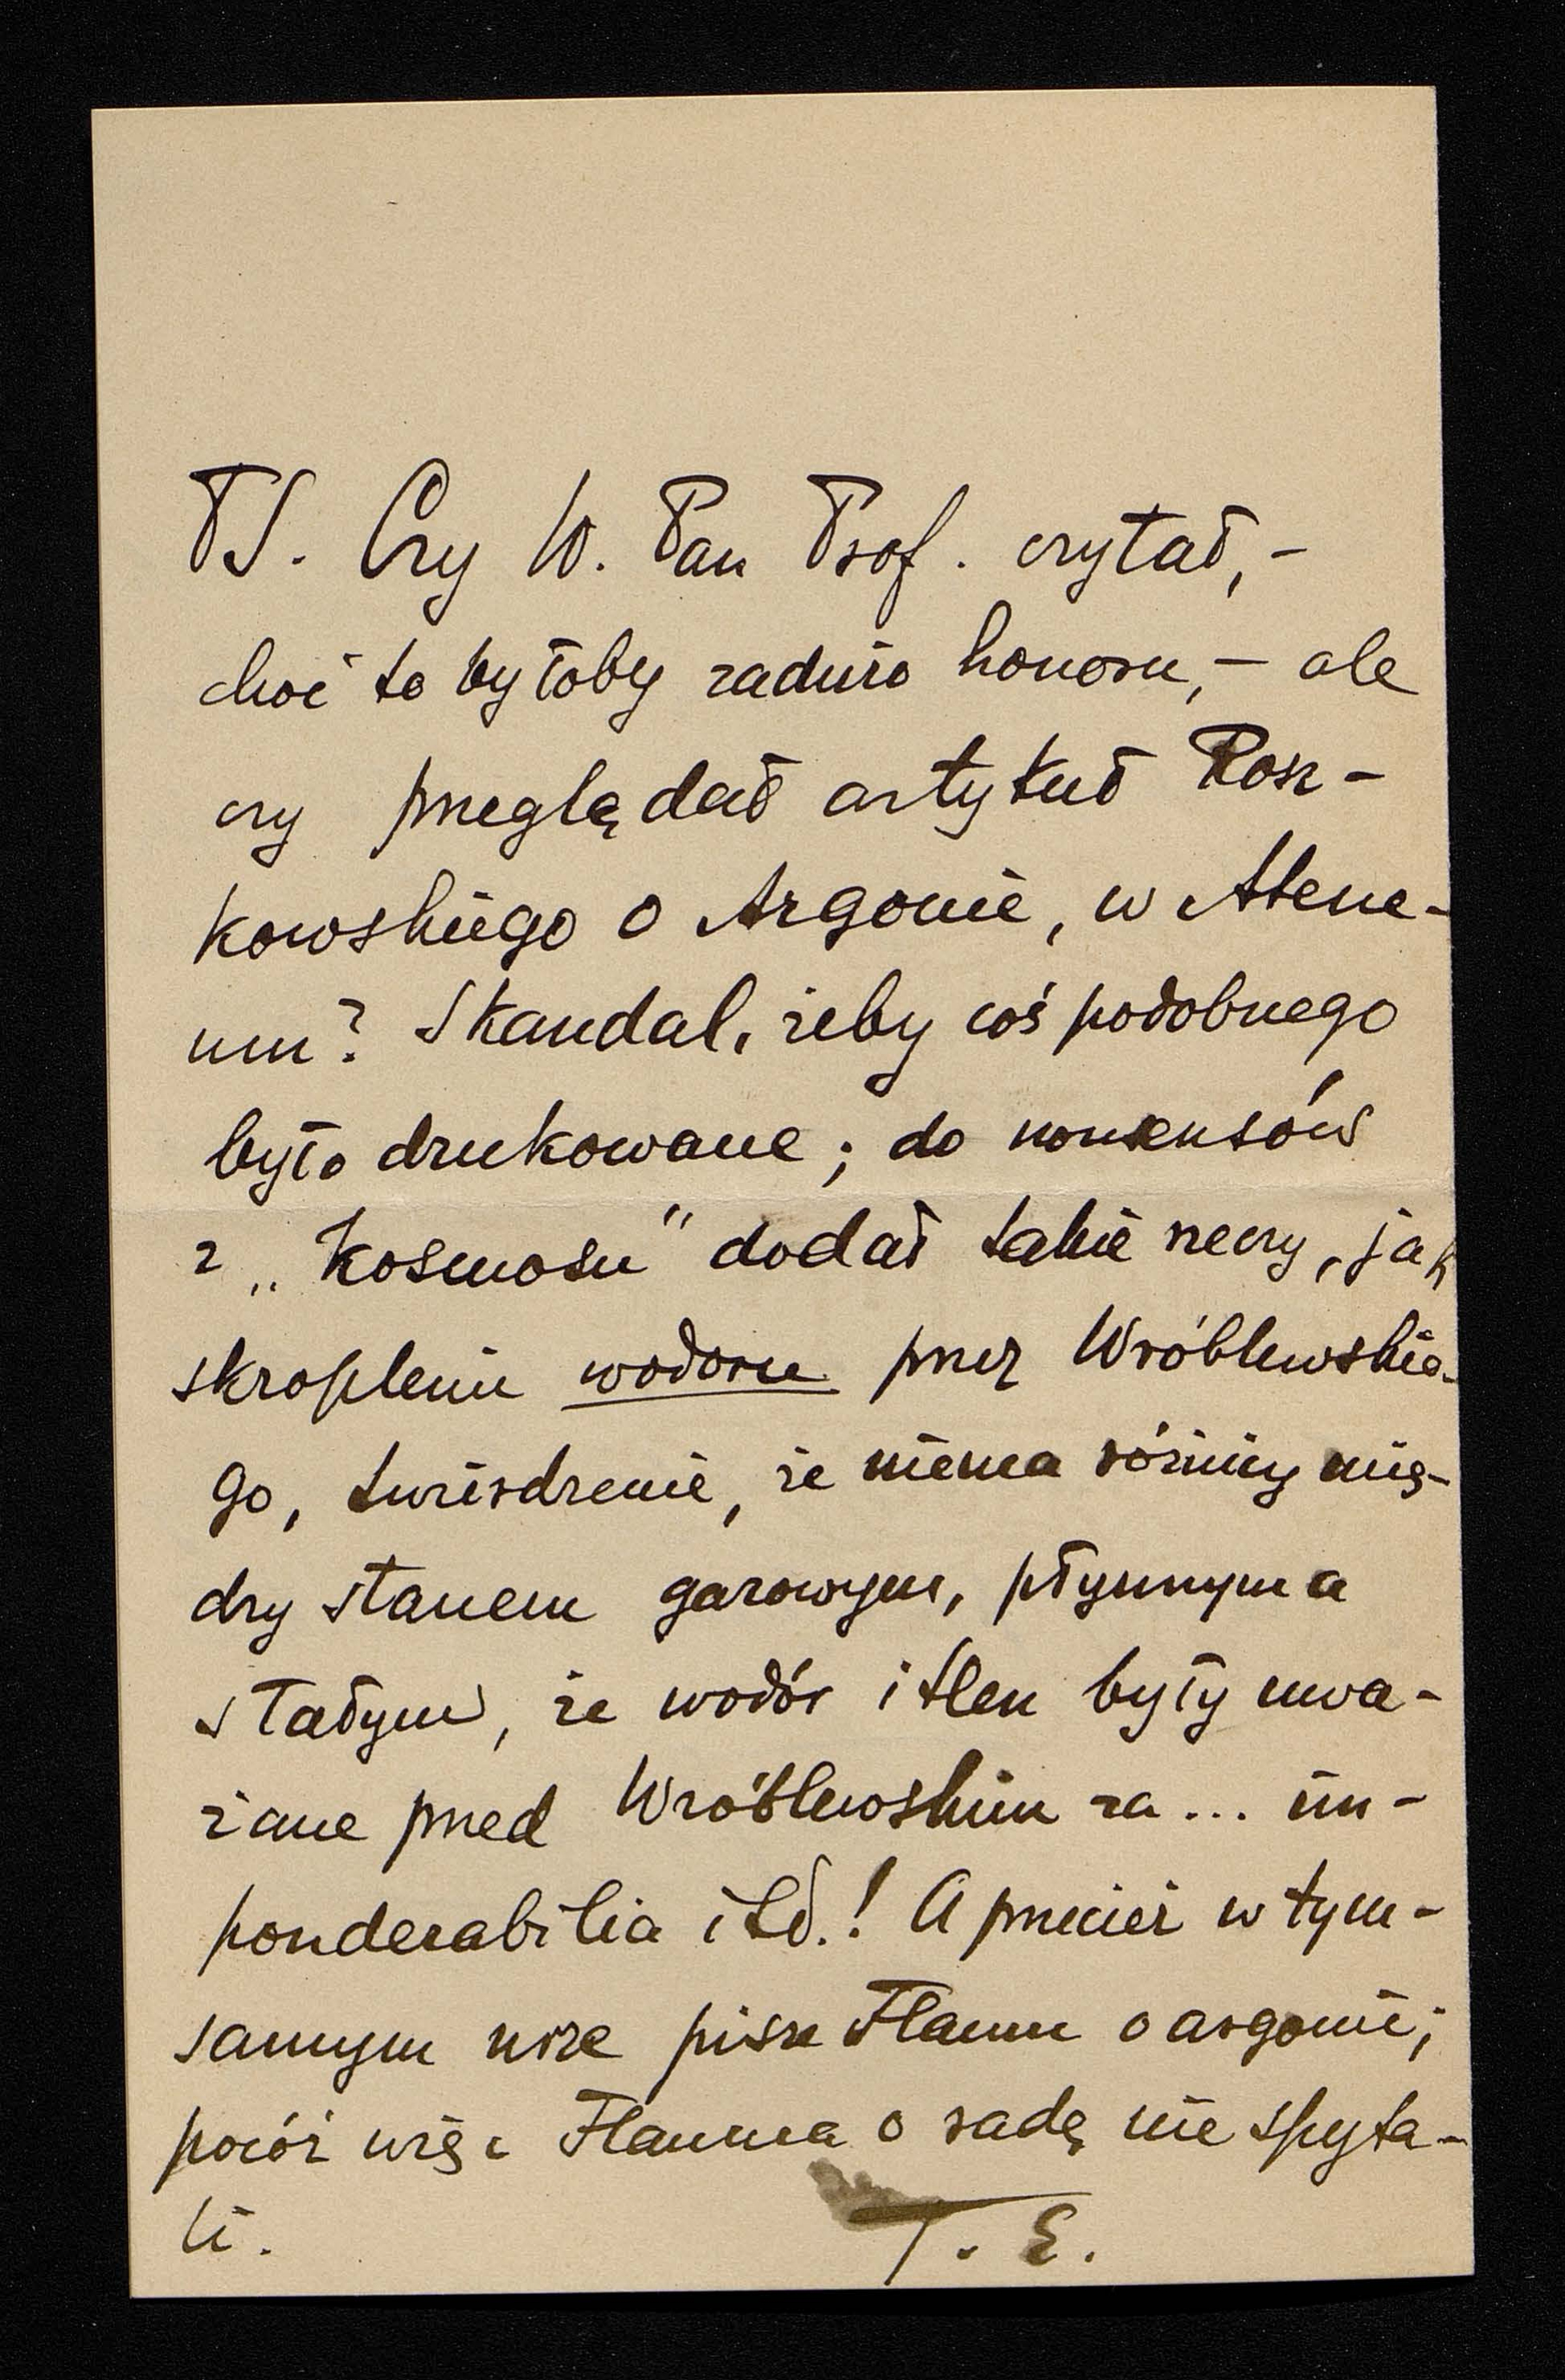 PS. Czy W. Pan Prof. czytał, –
choć to byłoby zadużo honoru, – ale
czy przeglądał artykuł Rosz-
kowskiego o Argonie, w Atene-
um? Skandal, żeby coś podobnego
było drukowane; do nonsensów
z „Kosmosu" dodał takie rzeczy, jak
skropleniu wodoru przez Wróblewskie-
go, twierdzenie, że niema różnicy mię-
dzy stanem gazowym, płynnym a
stałym, że wodór i tlen były uwa-
żane przed Wróblewskim za... im-
ponderabilia itd.! A przecież w tym-
samym nrze pisze Flaum o argonie;
pocóż więc Flauma o radę nie spyta-
li. T. E.